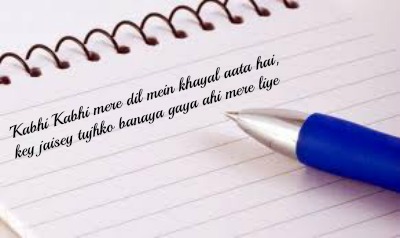 Kabhi Kabhi mere dil mein khayal aata hai,
key jaisey tujhko banaya gaya ahi mere liye